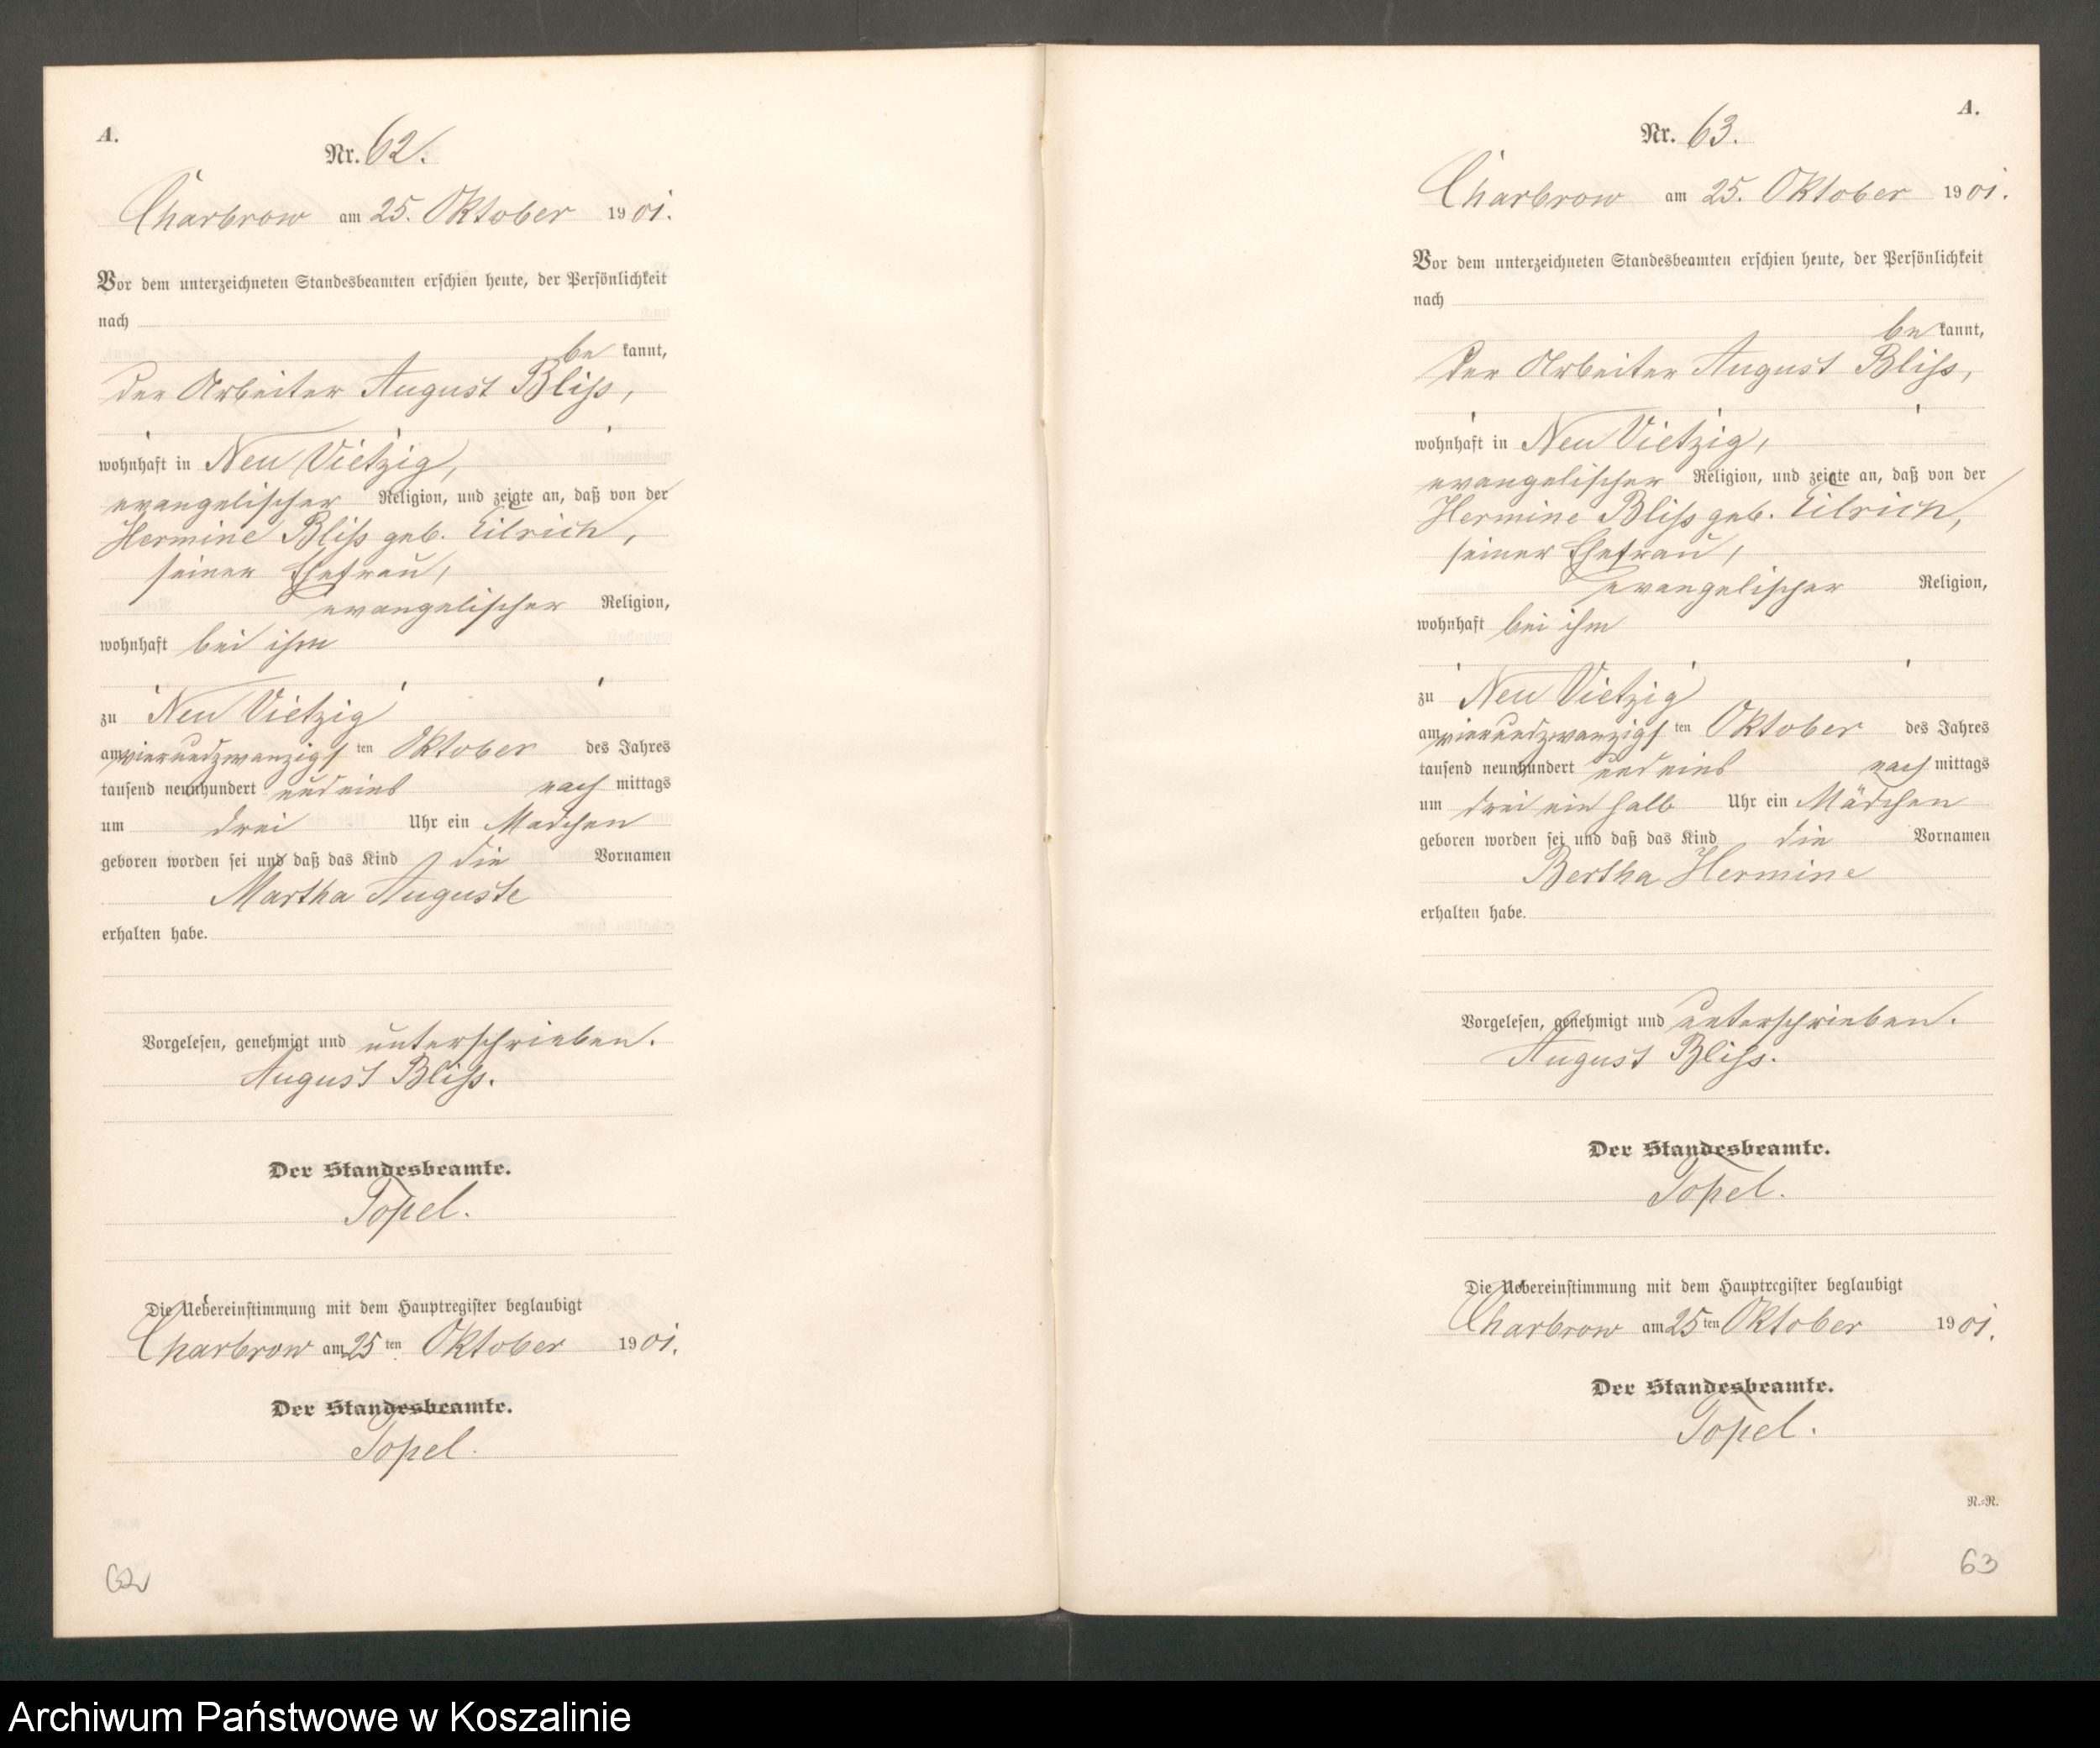 A.
Nr. 62.
Charbrow am 25. Oktober 1901.
Vor dem unterzeichneten Standesbeamten erschien heute, der Persönlichkeit
nach
be kannt,
der Arbeiter August Bliss,
wohnhaft in Neu Vietzig,
evangelischer Religion, und zeigte an, daß von der
Hermine Bliss geb. Eilrich,
seiner Ehefrau,
evangelischer Religion,
wohnhaft bei ihm
zu Neu Vietzig
am vierundzwanzigsten Oktober des Jahres
tausend neunhundert und eins nach mittags
um drei Uhr ein Mädchen
geboren worden sei und daß das Kind die Vornamen
Martha Auguste
erhalten habe.
Vorgelesen, genehmigt und unterschrieben.
August Bliss.
Der Standesbeamte.
Topel.
Die Uebereinstimmung mit dem Hauptregister beglaubigt
Charbrow am 25 ten Oktober 1901.
Der Standesbeamte.
Topel.
62
A.
Nr. 63.
Charbrow am 25. Oktober 1901.
Vor dem unterzeichneten Standesbeamten erschien heute, der Persönlichkeit
nach
be kannt,
der Arbeiter August Bliss,
wohnhaft in Neu Vietzig,
evangelischer Religion, und zeigte an, daß von der
Hermine Bliss geb. Eilrich,
seiner Ehefrau,
evangelischer Religion,
wohnhaft bei ihm
zu Neu Vietzig
am vierundzwanzigsten Oktober des Jahres
tausend neunhundert und eins nach mittags
um drei ein halb Uhr ein Mädchen
geboren worden sei und daß das Kind die Vornamen
Bertha Hermine
erhalten habe.
Vorgelesen, genehmigt und unterschrieben.
August Bliss.
Der Standesbeamte.
Topel.
Die Uebereinstimmung mit dem Hauptregister beglaubigt
Charbrow am 25 ten Oktober 1901.
Der Standesbeamte.
Topel.
N.=N.
63
Archiwum Państwowe w Koszalinie